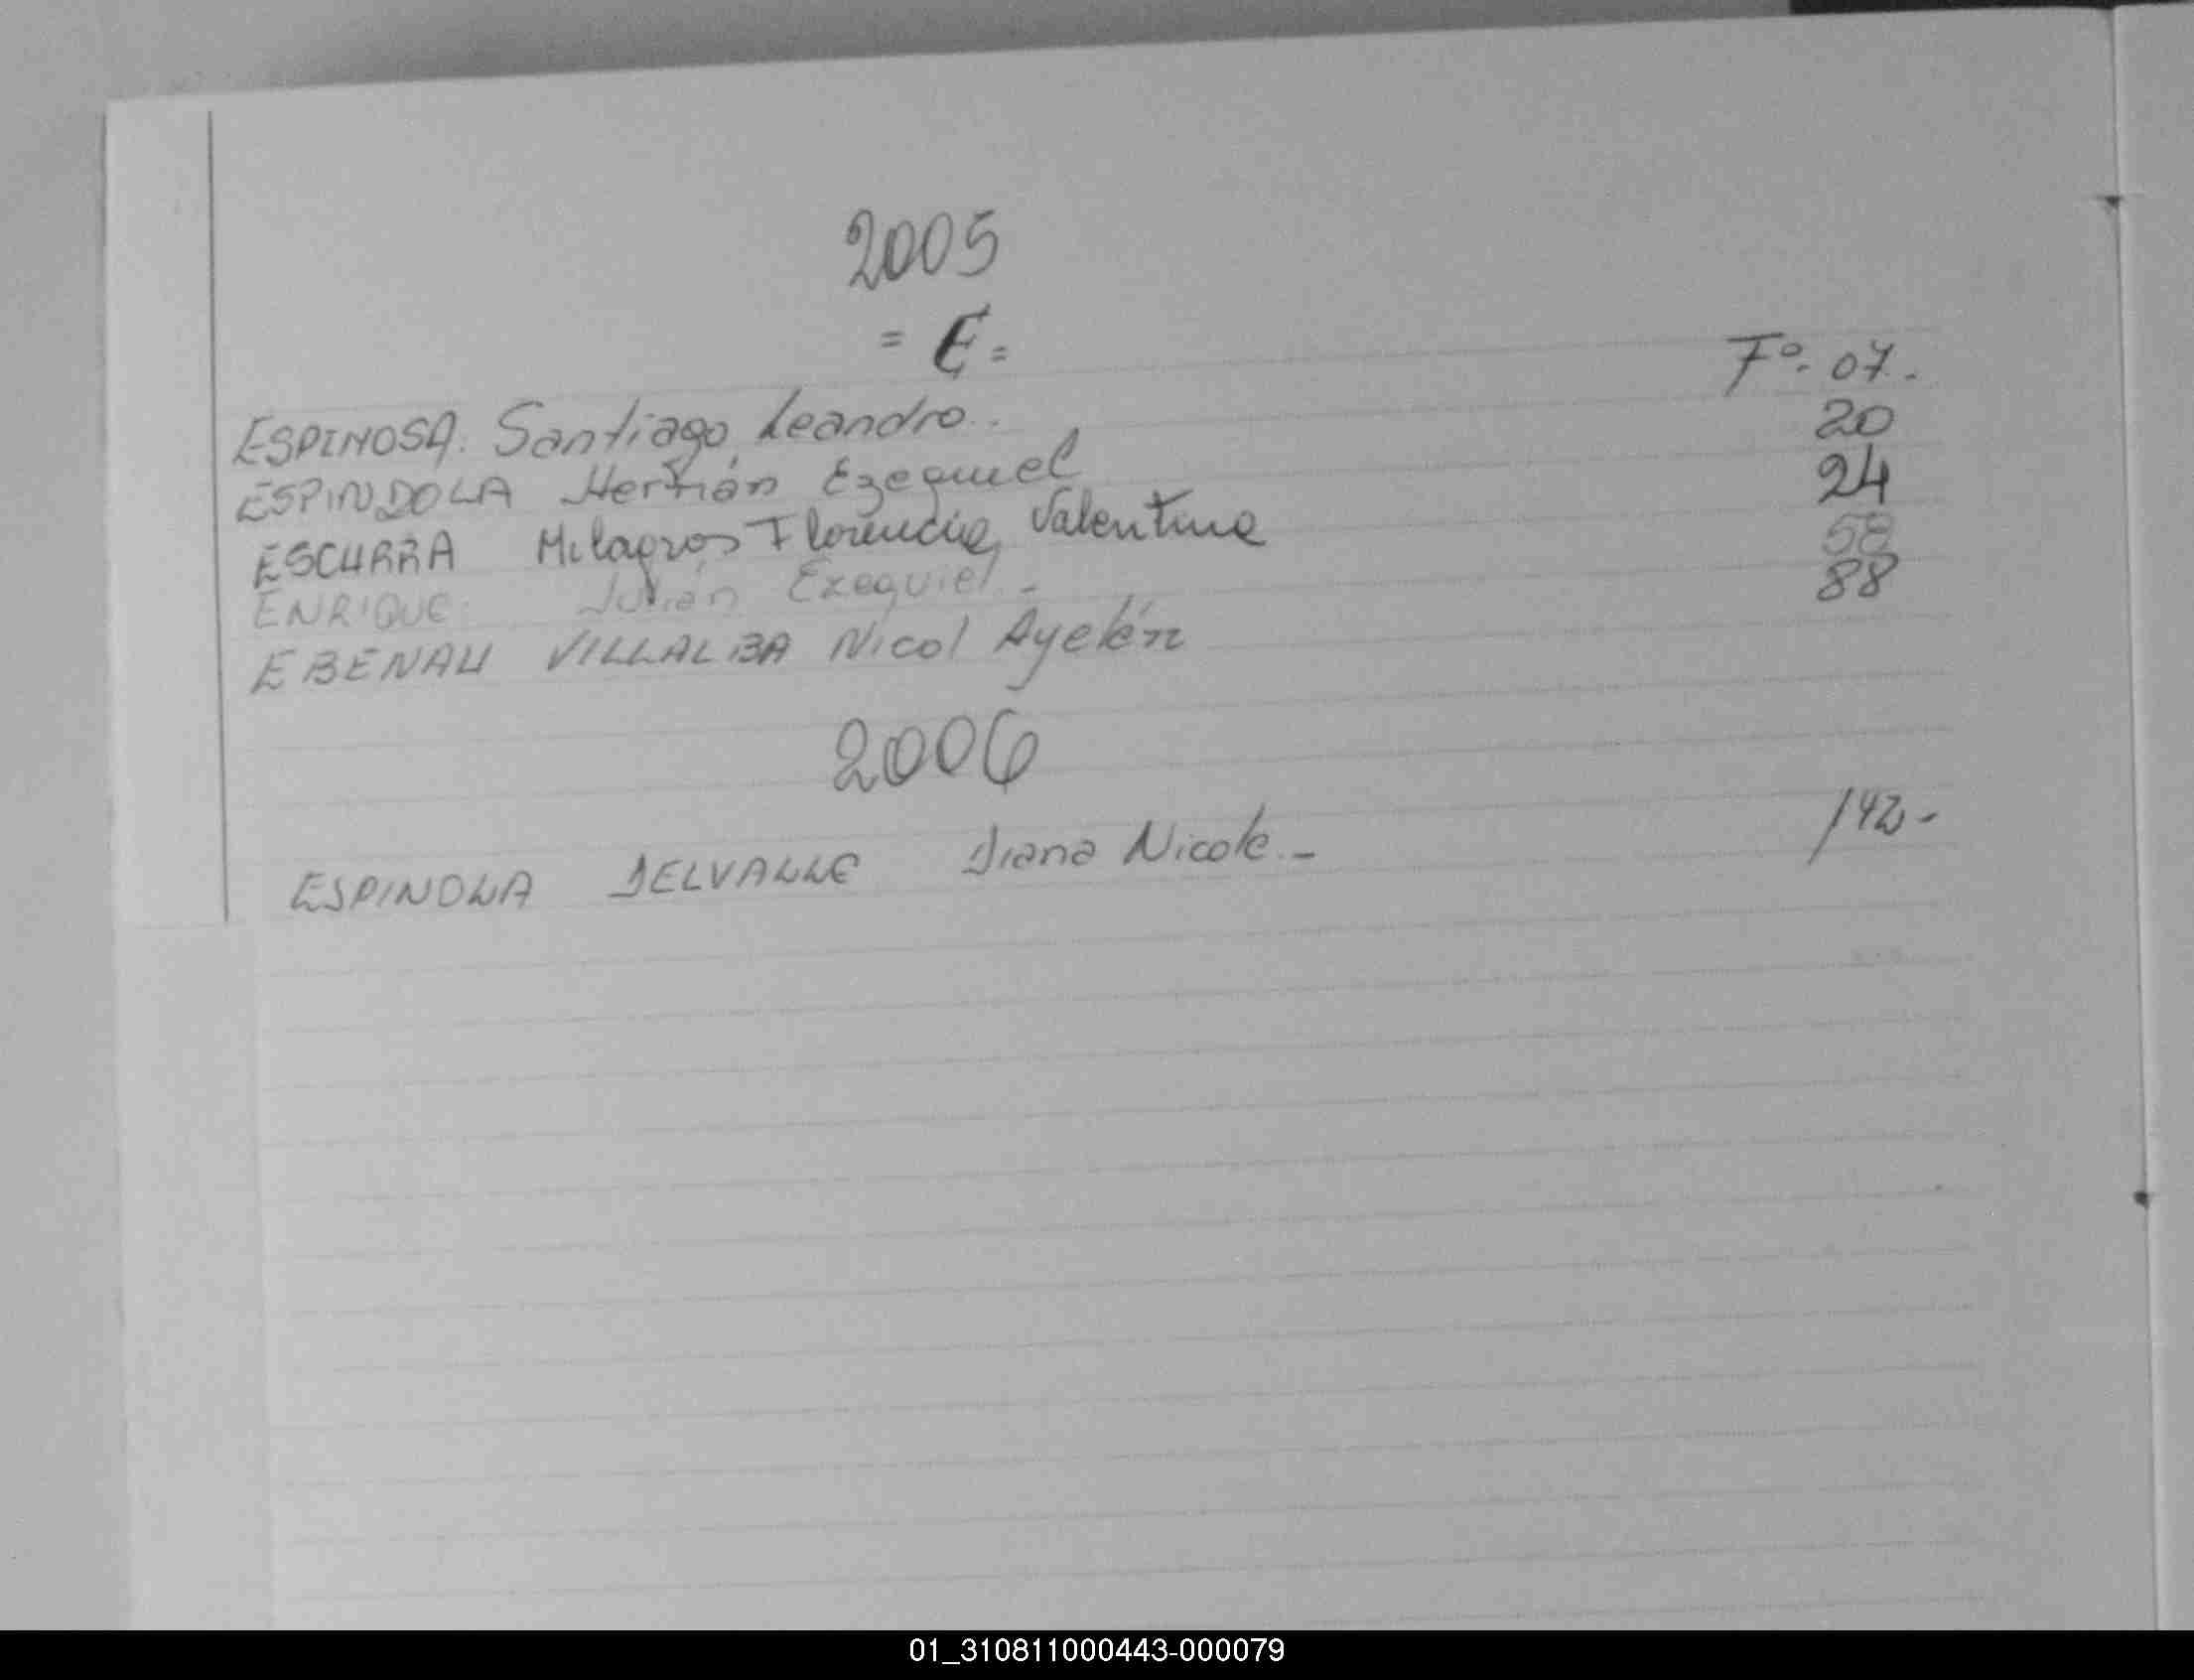 2005
= E =
ESPINOSA. Santiago Leandro.. Fº. 07.
ESPINDOLA Hernán Ezequiel 20
ESCURRA Milagros Florencia Valentina 24
ENRIQUE Julián Ezequiel.- 58
EBENAU VILLALBA Nicol Ayelén 88
2006
ESPINOLA DELVALLE Diana Nicole.- 142-
01_310811000443-000079